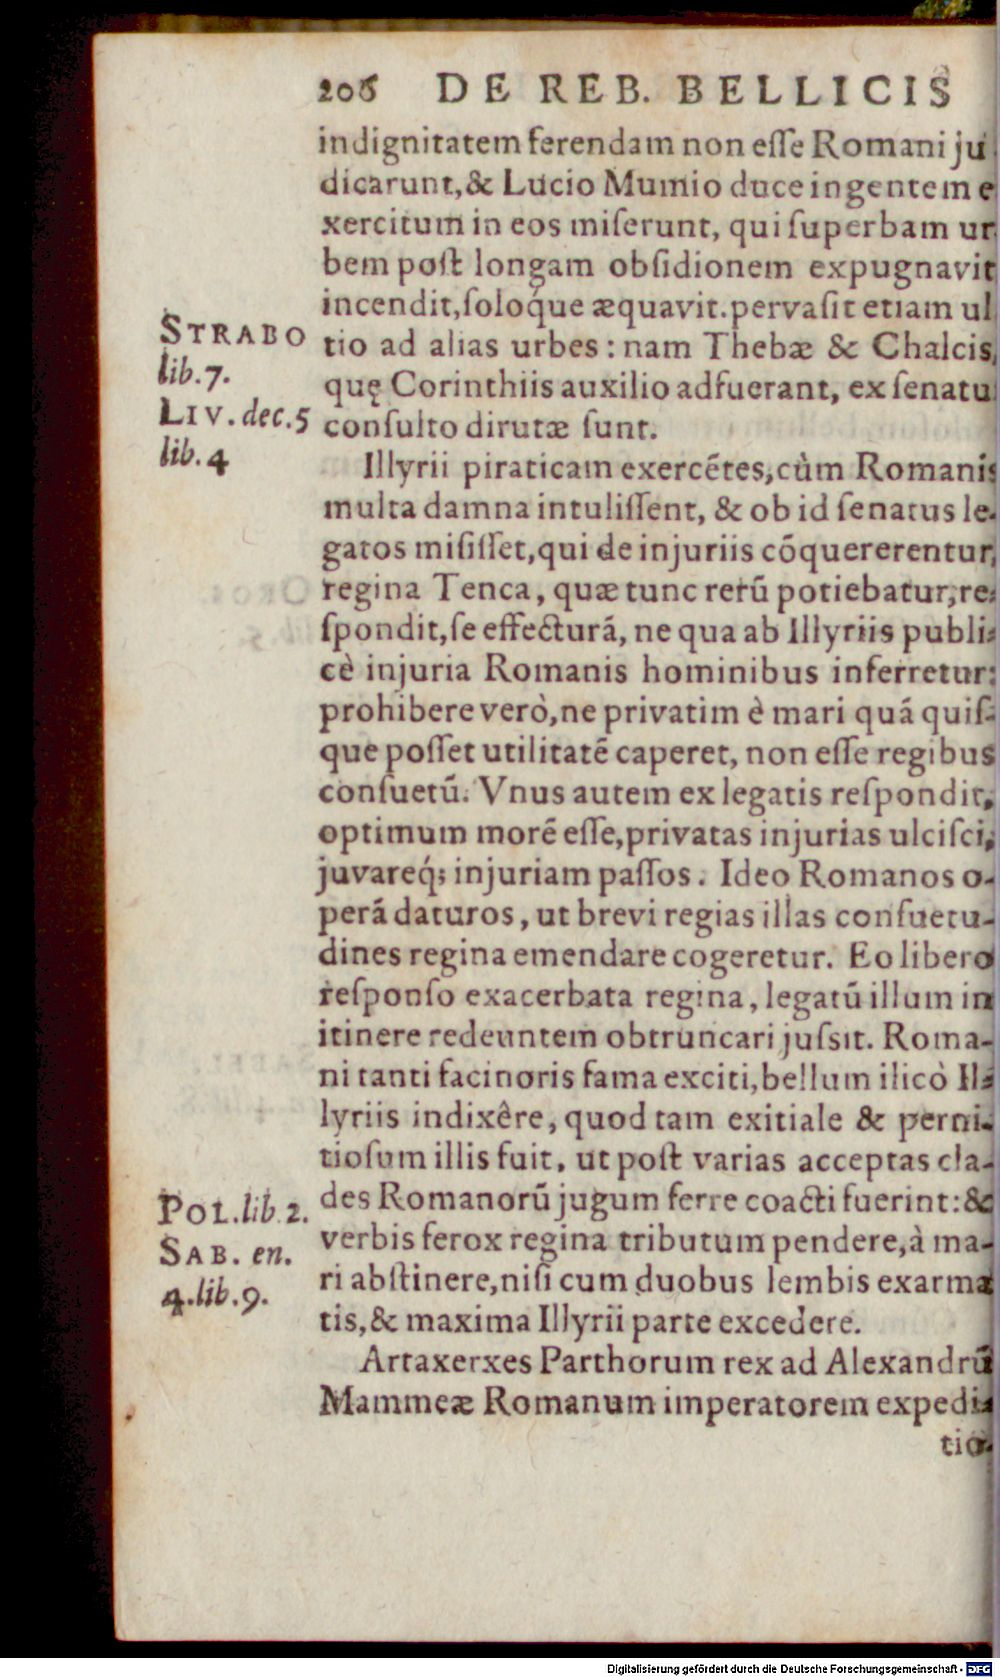 206 DE REB. BELLICIS
indignitatem ferendam non eſſe Romani ju
dicarunt,& Lucio Mumio duce ingentem e
xercitum in eos miſerunt, qui ſuperbam ur
bem poſt longam obſidionem expugnavit
incendit,ſoloq́ue æquavit.pervaſit etiam ul
STRABO
lib.7.
LIV. dec.5
lib.4
tio ad alias urbes: nam Thebæ & Chalcis,
quę Corinthiis auxilio adfuerant, ex ſenatu
conſulto dirutæ ſunt.
Illyrii piraticam exercētes,cùm Romanis
multa damna intuliſſent, & ob id ſenatus le-
gatos miſiſſet,qui de injuriis cōquererentur,
regina Tenca, quæ tunc rerū potiebatur,re-
ſpondit,ſe effecturā, ne qua ab Illyriis publi-
cè injuria Romanis hominibus inferretur:
prohibere verò,ne privatim è mari quā quiſ-
que poſſet utilitatē caperet, non eſſe regibus
conſuetū. Vnus autem ex legatis reſpondit,
optimum morē eſſe,privatas injurias ulciſci,
juvareq́; injuriam paſſos. Ideo Romanos o-
perā daturos, ut brevi regias illas conſuetu-
dines regina emendare cogeretur. Eo libero
reſponſo exacerbata regina, legatū illum in
itinere redeuntem obtruncari juſsit. Roma-
ni tanti facinoris fama exciti,bellum ilicò Il-
lyriis indixêre, quod tam exitiale & perni-
tioſum illis fuit, ut poſt varias acceptas cla-
des Romanorū jugum ferre coacti fuerint: &
POL.lib.2.
SAB. en.
4.lib.9.
verbis ferox regina tributum pendere,à ma-
ri abſtinere,niſi cum duobus lembis exarma
tis,& maxima Illyrii parte excedere.
Artaxerxes Parthorum rex ad Alexandrū
Mammeæ Romanum imperatorem expedi-
tio-
Digitalisierung gefördert durch die Deutsche Forschungsgemeinschaft - DFG